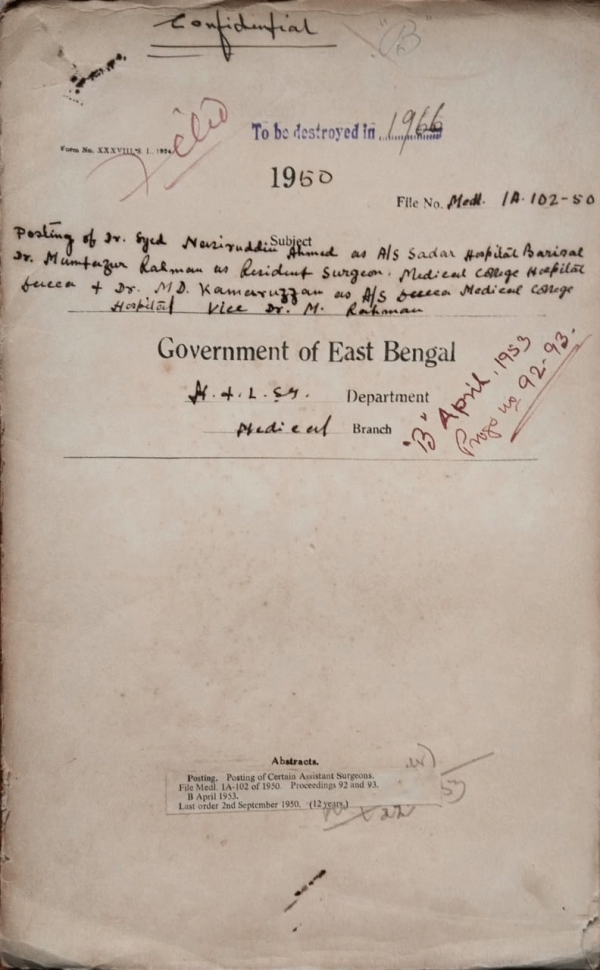 Confidential
"B"
To be destroyed in 1966
Form No. XXXVIII
1950
File No. Medl. 1A-102-50
Subject
Posting of Dr. Syed Nasiruddin Ahmed as A/S Sadar Hospital Barisal
Dr. Mumtazur Rahman as Resident Surgeon. Medical College Hospital
Dacca + Dr. MD. Kamaruzzan as A/S Dacca Medical College
Hospital Vice Dr. M. Rahman
Government of East Bengal
H. & L. S. G. Department
Medical Branch
"B" April, 1953
Progs no 92-93.
Abstracts.
Posting. Posting of Certain Assistant Surgeons.
File Medl. 1A-102 of 1950. Proceedings 92 and 93.
B April 1953.
Last order 2nd September 1950. (12 years.)